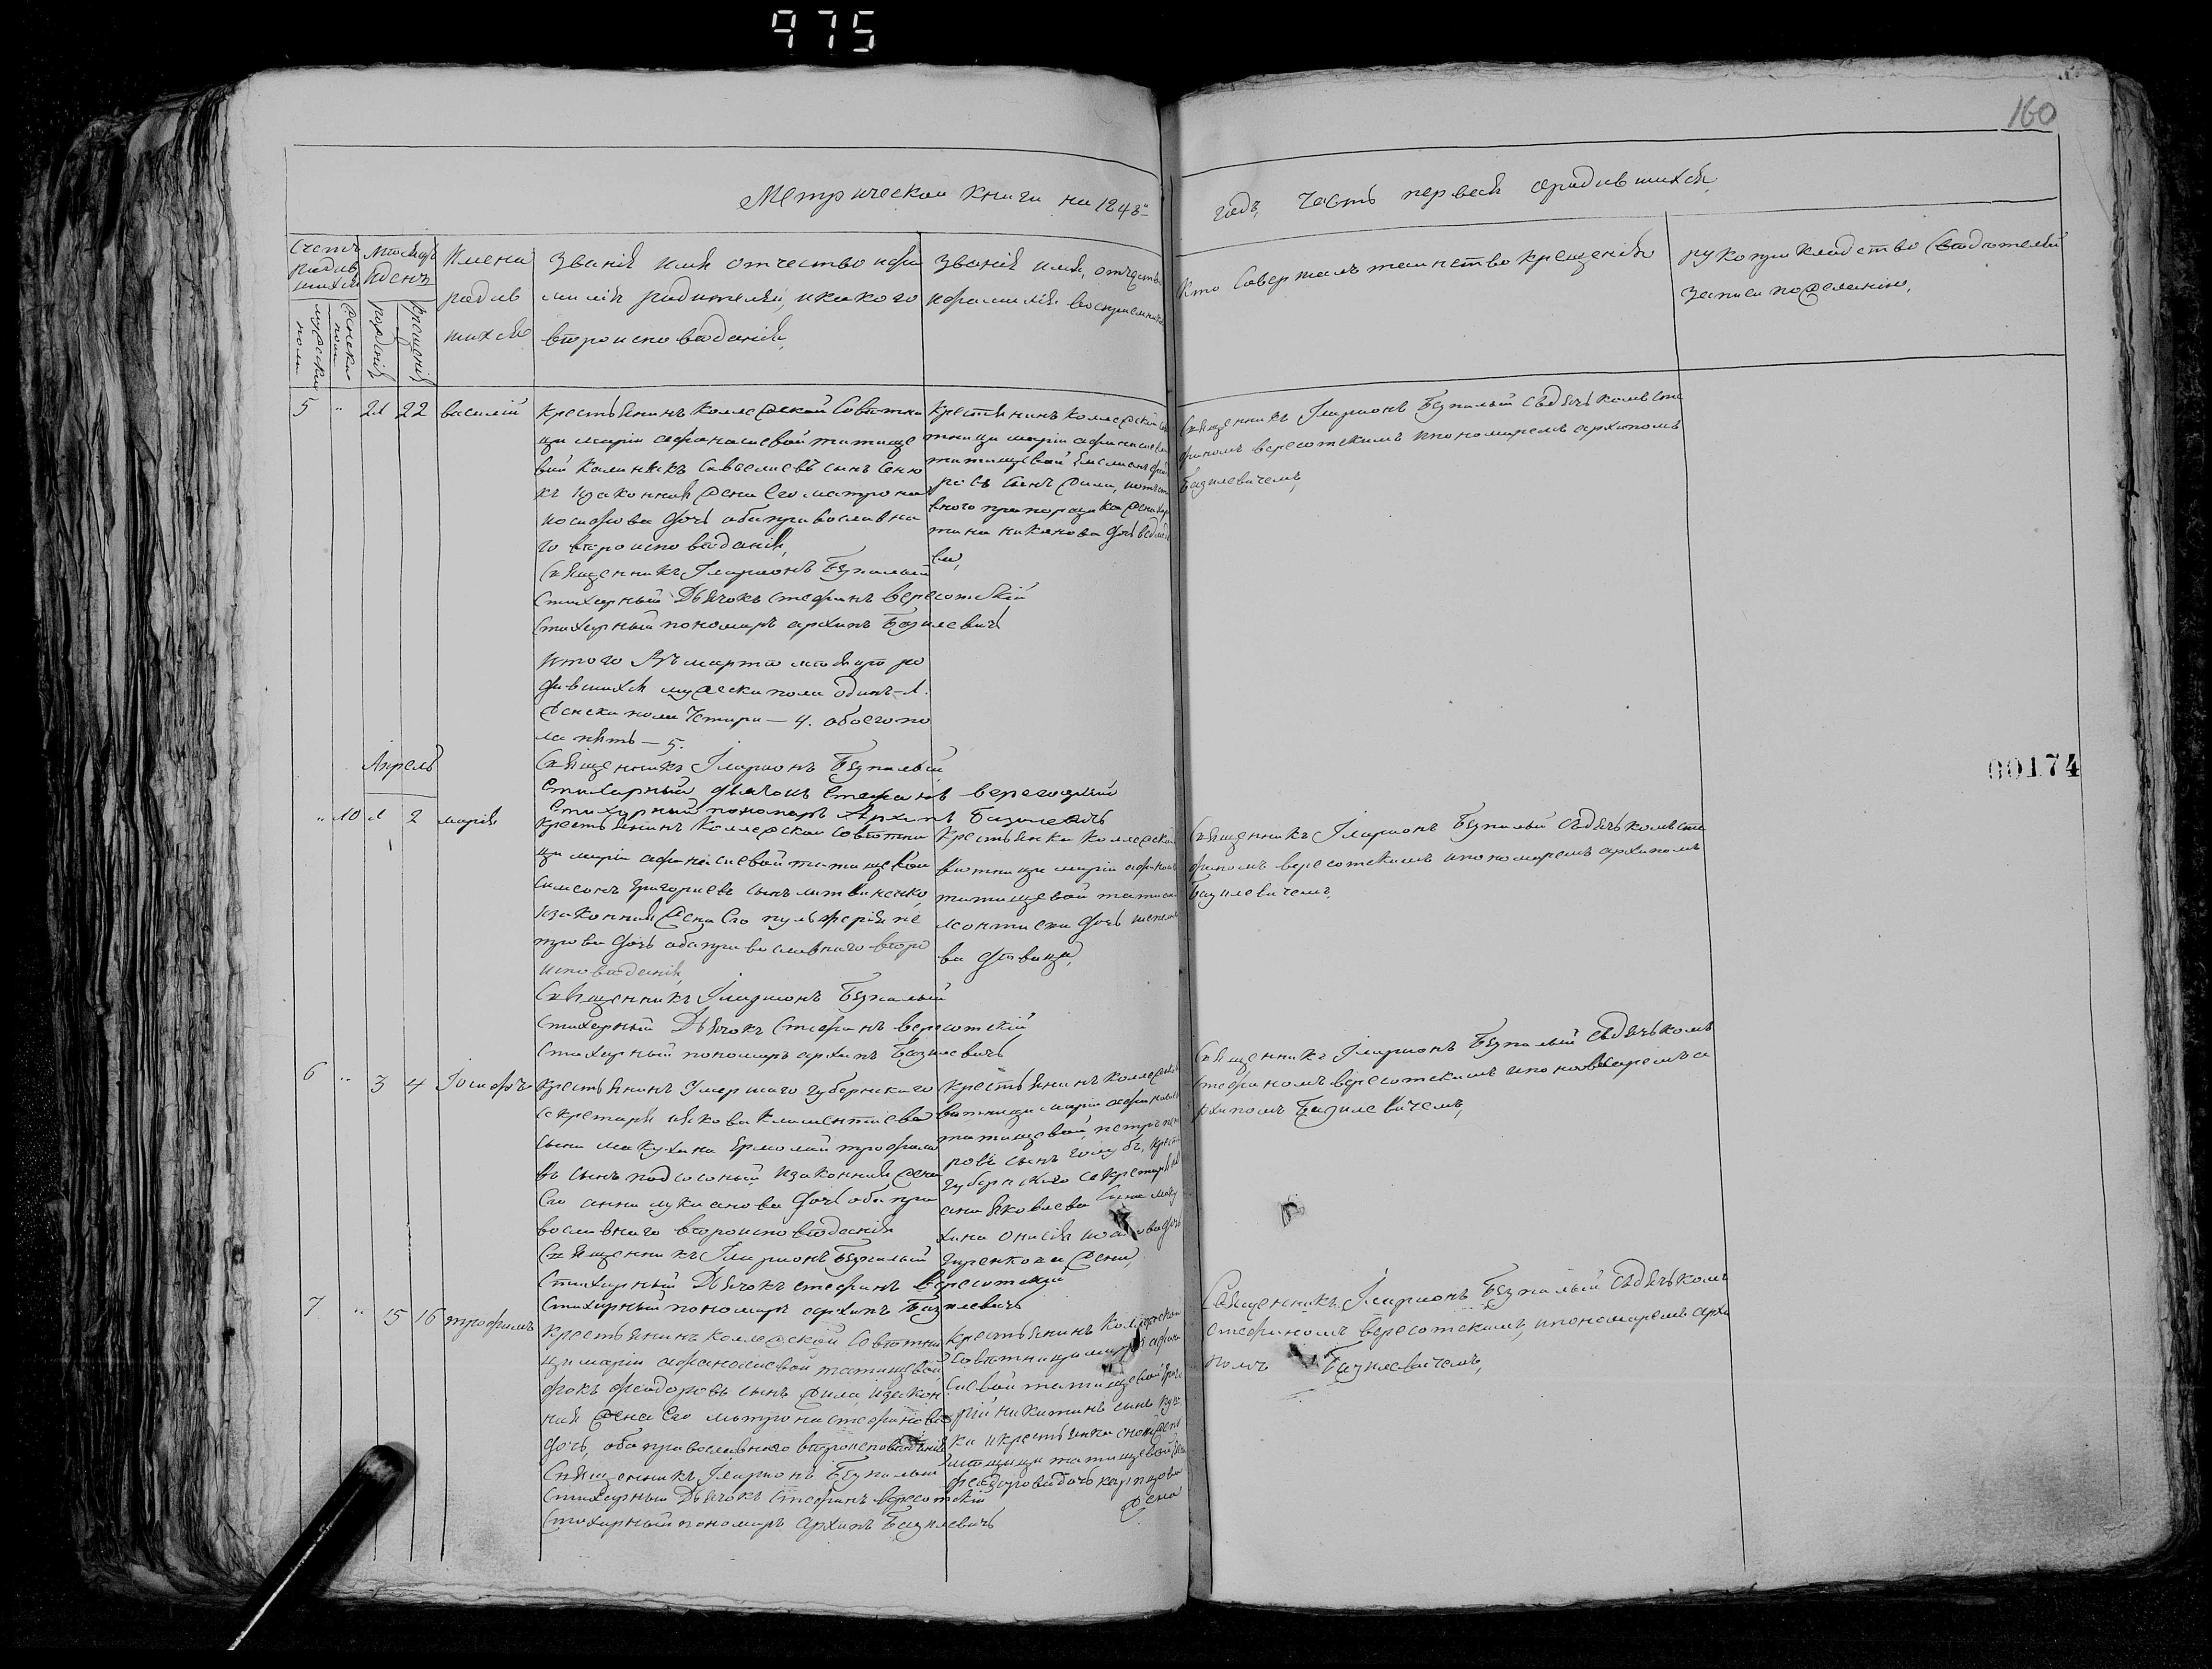 975
160
Метрической книги на 1848-
годъ, часть первая ородившихся
Счетъ родив шихся
мужеска пола
женска пола
Месяцъ и день
рожденія
крещенія
Имена
родив
шихся
Званія имя отчество ифа
милія родителей, икакого
вероисповѣданія,
Званія имя, отчество
ифамилія воспріемниковъ
Кто совершалъ таинство крещенія
рукоприкладство свидѣтелей
записи пожеланію,
5 " 21 22 василій
крестьянинъ коллежской совѣтни
цы маріи афанасіевой татище
вой Калиникъ савелиевъ сынъ
изаконная жена его матрона
иосифова дочь оба православна
го вероисповѣданія,
Священникъ Іларионъ Безпалый
Стихарный Дьячокъ Стефанъ вересотскій
Стихарный пономарь архипъ Базилевичъ
крестьянинъ коллежской
тницы маріи афанасиев
татищевой
ровъ сынъ
вного прапорщика жена
тина никонова дочь
ва,
Священникъ Іларионъ Безпалый сдьячкомъ сте
фаномъ вересотскимъ ипономаремъ архипомъ
Базилевичемъ,
итого въ марте месяце ро
дившихся мужеска пола одинъ-1.
женска пола Четыри — 4. обоего по
ла пять — 5.
Апрель
Священникъ Іларионъ Безпалый
Стихарный дьячокъ Стефанъ вересоцкий
Стихарный пономарь Архипъ Базилевичъ
" 10 1 2 марія
крестьянинъ Коллежской совѣтни
цы маріи афанасиевой татищевой
симеонъ григориевъ сынъ литвиненко,
изаконная жена его пульхерія пе
трова дочь оба православнаго веро
исповѣданія,
Священникъ Іларионъ Безпалый
Стихарный Дьячокъ Стефанъ вересотскій
Стихарный пономарь архипъ Базилевичъ
крестьянка коллежской
вѣтницы маріи афанас
татищевой
дочь
ва дѣвица,
Священникъ Іларионъ Безпалый сдьячкомъ сте
фаномъ вересотскимъ ипономаремъ архипомъ
Базилевичемъ,
6 " 3 4 Іосифъ
крестьянинъ умершаго губернскаго
секретаря якова климентиева
сына макухина ермолай трофимо
въ сынъ подсосный изаконная жена
его анна лукианова дочь оба пра
вославнаго вероисповѣданія
Священникъ Іларионъ Безпалый
Стихарный Дьячокъ стефанъ вересотскій
Стихарный пономарь архипъ Базилевичъ
крестьянинъ коллежской
вѣтницы маріи афанасиев
татищевой, петръ
ровъ сынъ голубъ,
губернскаго секретаря
яковлева сына маку
хина онисія дочь
жена,
Священникъ Іларионъ Безпалый сдьячкомъ
стефаномъ вересотскимъ ипономаремъ а
рхипомъ Базилевичемъ,
7 " 15 16 трофимъ
крестьянинъ коллежской совѣтни
цы маріи афанасиевой татищевой
фокъ феодоровъ сынъ изакон
ная жена его матрона стефанова
дочь, оба православнаго вероисповѣданія
Священникъ Іларионъ Безпалый
Стихарный Дьячокъ Стефанъ вересотскій
Стихарный пономарь архипъ Базилевичъ
крестьянинъ коллежской
совѣтницы маріи афана
сиевой татищевой григо
рій никитинъ сынъ
ка икрестьянка
татищевой
феодорова дочь карпцова
жена
Священникъ Іларионъ Безпалый сдьячкомъ
стефаномъ вересотскимъ, ипономаремъ архи
помъ Базилевичемъ,
00174